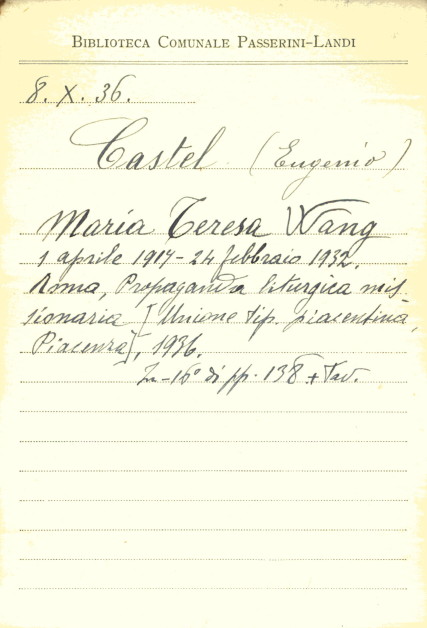 BIBLIOTECA COMUNALE PASSERINI-LANDI
8. X. 36.
Castel (Eugenio)
Maria Teresa Wang
1 aprile 1917 - 24 febbraio 1932.
Roma, Propaganda liturgica mis-
sionaria [Unione tip. piacentina,
Piacenza], 1936.
In-16° di pp. 138 + Tav.